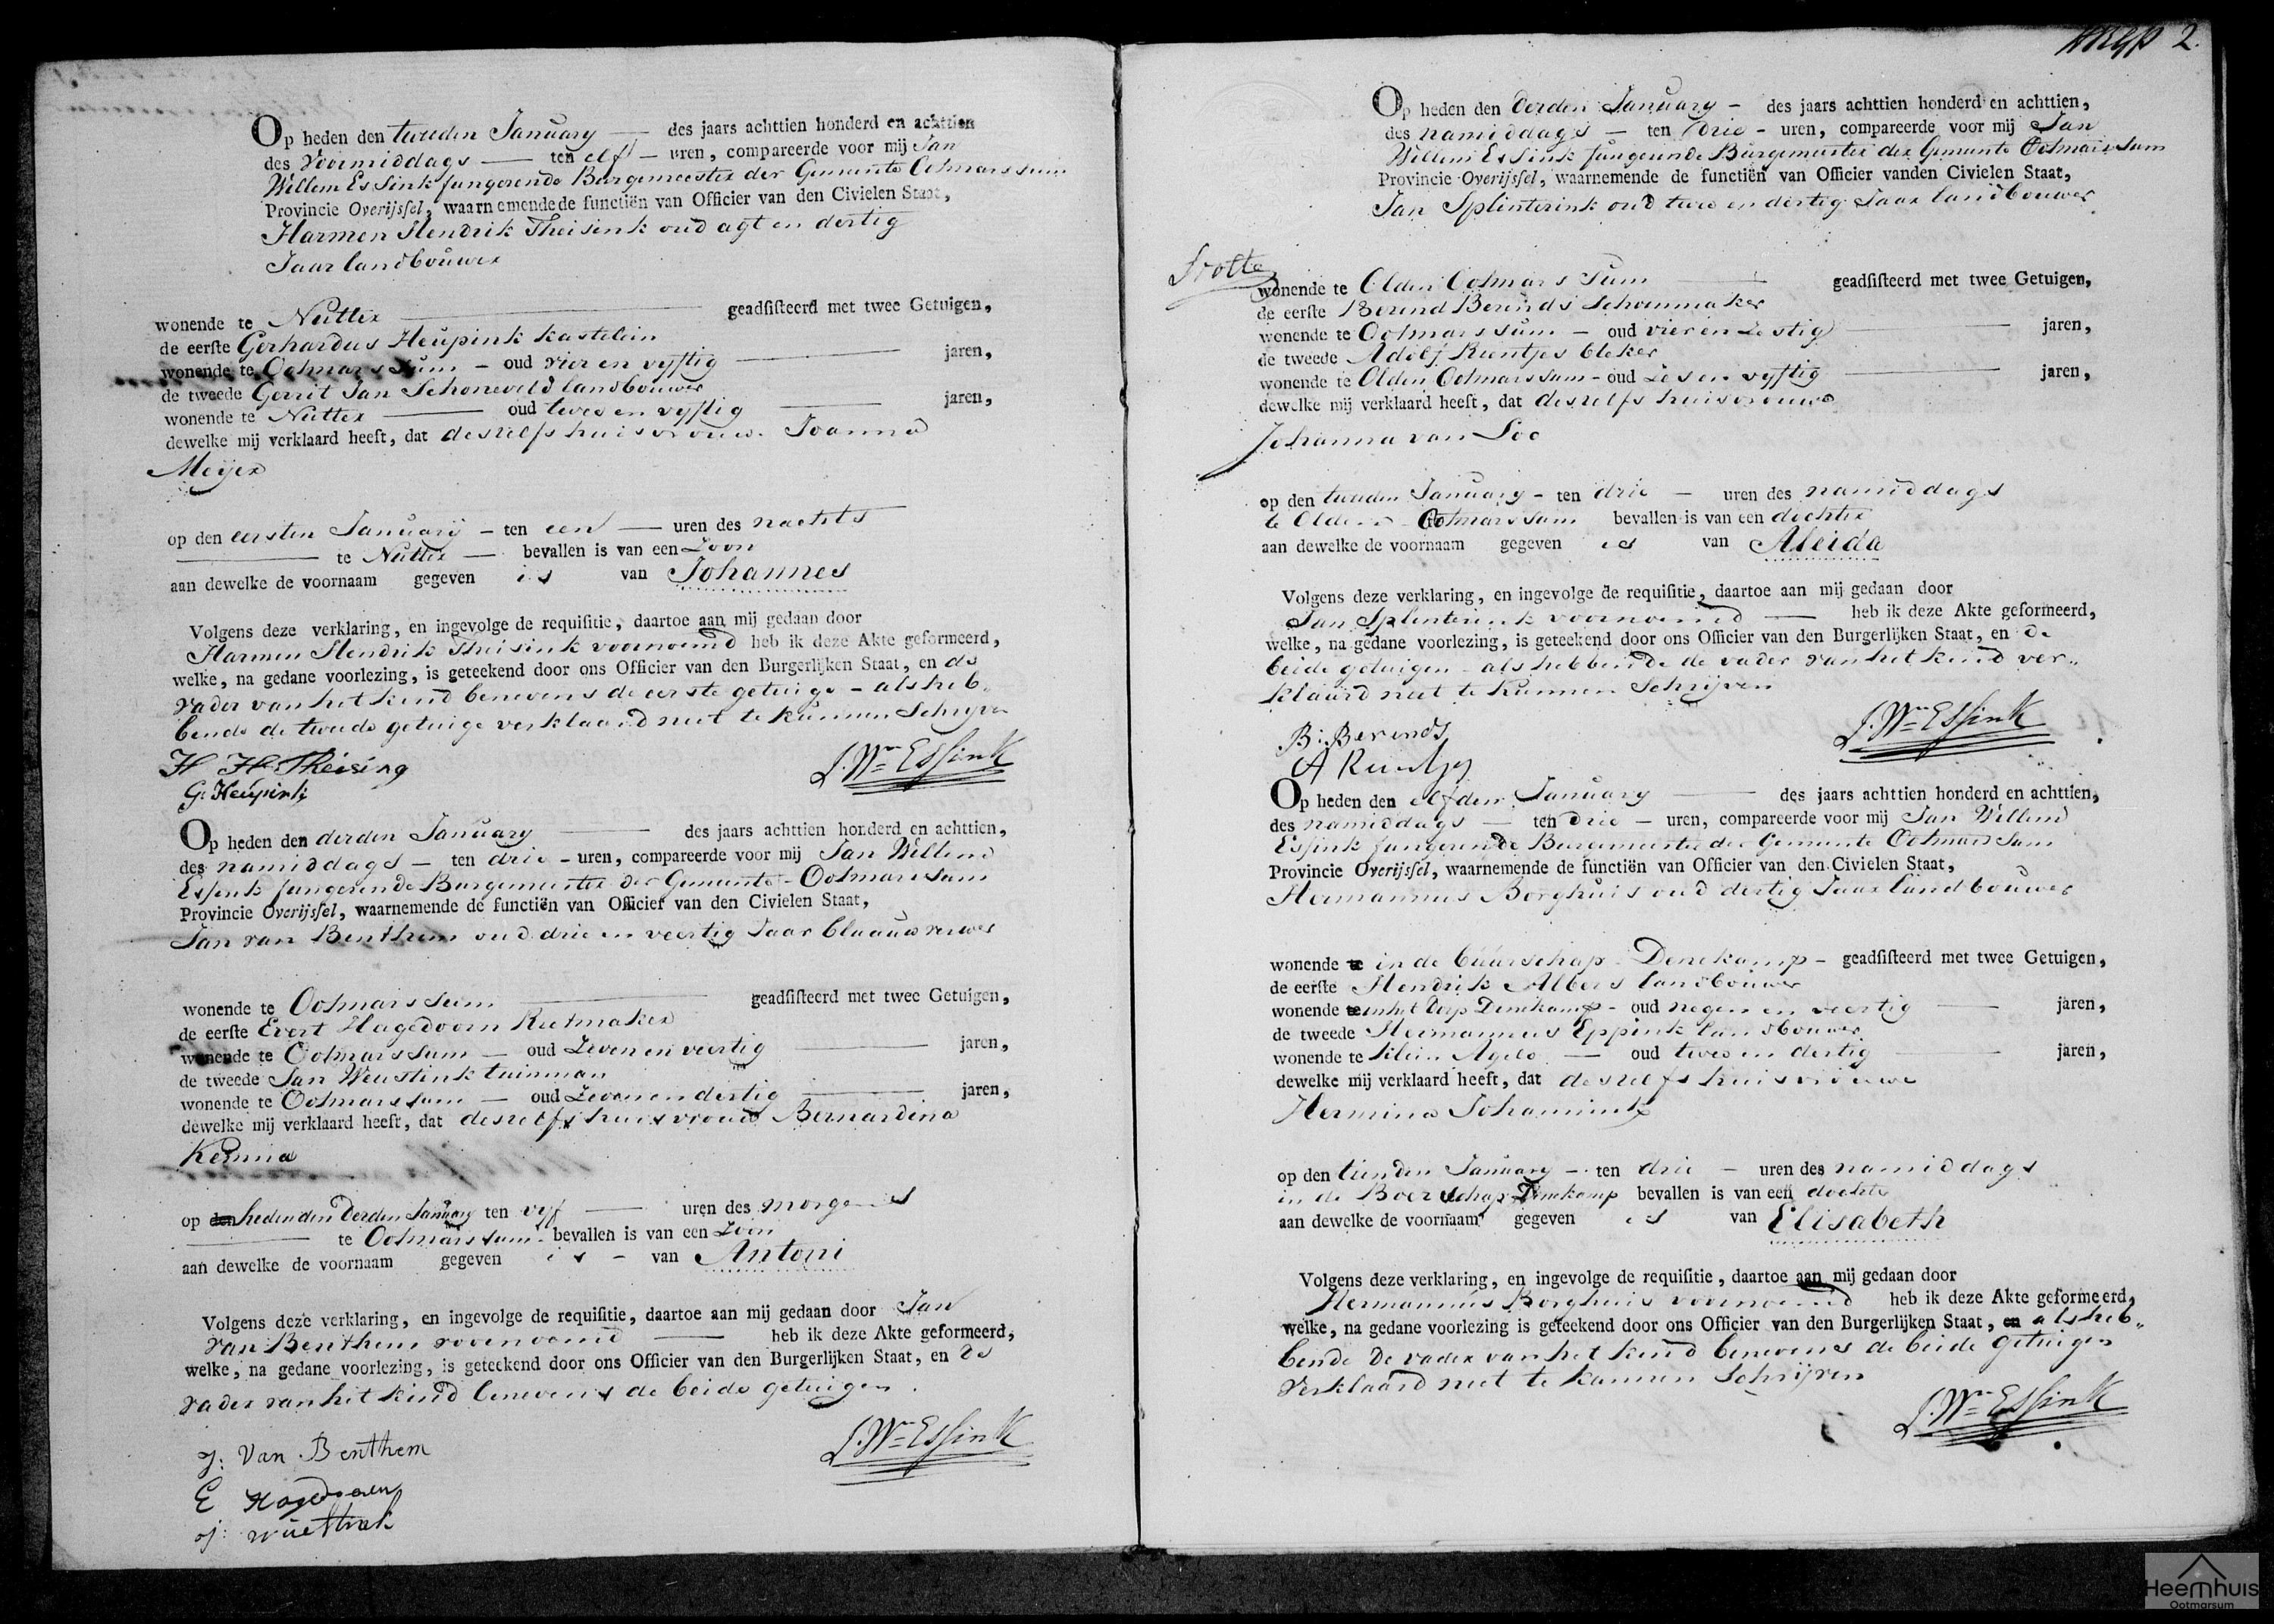 Op heden den tweeden January — des jaars achttien honderd en achttien
des voormiddags — ten elf — uren, compareerde voor mij Jan
Willem Essink fungerende Burgemeester der Gemeente Ootmarssum
Provincie Overijssel, waarnemende de functiën van Officier van den Civielen Staat,
Harmen Hendrik Theisink oud agt en dertig
Jaar landbouwer
wonende te Nutter — geadsisteerd met twee Getuigen,
de eerste Gerhardus Heupink kastelein
wonende te Ootmarssum — oud vier en vyftig — jaren,
de tweede Gerrit Jan Schoneveld landbouwer
wonende te Nutter — oud twee en vyftig — jaren,
dewelke mij verklaard heeft, dat deszelfs huisvrouw Joanna
Meijer
op den eersten January — ten een — uren des nachts
— te Nutter — bevallen is van een Zoon
aan dewelke de voornaam gegeven is van Johannes
Volgens deze verklaring, en ingevolge de requisitie, daartoe aan mij gedaan door
Harmen Hendrik Theisink voornoemd heb ik deze Akte geformeerd,
welke, na gedane voorlezing, is geteekend door ons Officier van den Burgerlijken Staat, en de
vader van het kind benevens de eerste getuige — als heb„
bende de tweede getuige verklaard niet te kunnen Schryven
H H Theising
J. Wm Essink
G: Heupink
Op heden den derden January — des jaars achttien honderd en achttien,
des namiddags — ten drie — uren, compareerde voor mij Jan Willem
Essink fungerende Burgemeester der Gemeente Ootmarssum
Provincie Overijssel, waarnemende de functiën van Officier van den Civielen Staat,
Jan van Benthem oud drie en veertig Jaar blaauwverwer
wonende te Ootmarssum — geadsisteerd met twee Getuigen,
de eerste Evert Hagedoorn Rietmaker
wonende te Ootmarssum — oud Zeven en veertig — jaren,
de tweede Jan Weustink tuinman
wonende te Ootmarssum — oud Zeven en dertig — jaren,
dewelke mij verklaard heeft, dat deszelfs huisvrouw Bernardina
Kemna
op den heden den derden January ten vyf — uren des morgens
— te Ootmarssum bevallen is van een Zoon
aan dewelke de voornaam gegeven is — van Antoni
Volgens deze verklaring, en ingevolge de requisitie, daartoe aan mij gedaan door Jan
van Benthem voornoemd — heb ik deze Akte geformeerd,
welke, na gedane voorlezing, is geteekend door ons Officier van den Burgerlijken Staat, en de
vader van het kind benevens de beide getuigen.
J. Wm Essink
J: Van Benthem
E Hagedoorn
2.
Op heden den derden January — des jaars achttien honderd en achttien,
des namiddags — ten drie — uren, compareerde voor mij Jan
Willem Essink fungerende Burgemeester der Gemeente Ootmarssum
Provincie Overijssel, waarnemende de functiën van Officier vanden Civielen Staat,
Jan Splinterink oud twee en dertig Jaar landbouwer
wonende te Olden Ootmarssum — geadsisteerd met twee Getuigen,
de eerste Berend Berends Schoenmaker
wonende te Ootmarssum — oud vier en Zestig — jaren,
de tweede Adolf Rientjes bleker
wonende te Olden Ootmarssum — oud Zes en vyftig — jaren,
dewelke mij verklaard heeft, dat deszelfs huisvrouwe
Johanna van Loo
op den tweeden January — ten drie — uren des namiddags
te Olden Ootmarssum bevallen is van een dochter
aan dewelke de voornaam gegeven is van Aleida
Volgens deze verklaring, en ingevolge de requisitie, daartoe aan mij gedaan door
Jan Splinterink voornoemd — heb ik deze Akte geformeerd,
welke, na gedane voorlezing, is geteekend door ons Officier van den Burgerlijken Staat, en de
beide getuigen — als hebbende de vader van het kind ver„
klaard niet te kunnen Schrijven
B: Berends
J. Wm Essink
Op heden den elfden January — des jaars achttien honderd en achttien,
des namiddags — ten drie — uren, compareerde voor mij Jan Willem
Essink fungerende Burgemeester der Gemeente Ootmarssum
Provincie Overijssel, waarnemende de functiën van Officier van den Civielen Staat,
Hermannus Borghuis oud dertig Jaar landbouwer
wonende te in de buurschap Denekamp — geadsisteerd met twee Getuigen,
de eerste Hendrik Albers landbouwer
wonende te in het dorp Denekamp — oud negen en veertig — jaren,
de tweede Hermannus Eppink landbouwer
wonende te Klein Agelo — oud twee en dertig — jaren,
dewelke mij verklaard heeft, dat deszelfs huisvrouwe
Hermina Johannink
op den tienden January — ten drie — uren des namiddags
in de Boerschap Denekamp bevallen is van een dochter
aan dewelke de voornaam gegeven is van Elisabeth
Volgens deze verklaring, en ingevolge de requisitie, daartoe aan mij gedaan door
Hermannus Borghuis voornoemd heb ik deze Akte geformeerd,
welke, na gedane voorlezing is geteekend door ons Officier van den Burgerlijken Staat, en als heb„
bende de vader van het kind benevens de beide getuigen
verklaard niet te kunnen Schrijven
J. Wm Essink
Heemhuis
Ootmarsum